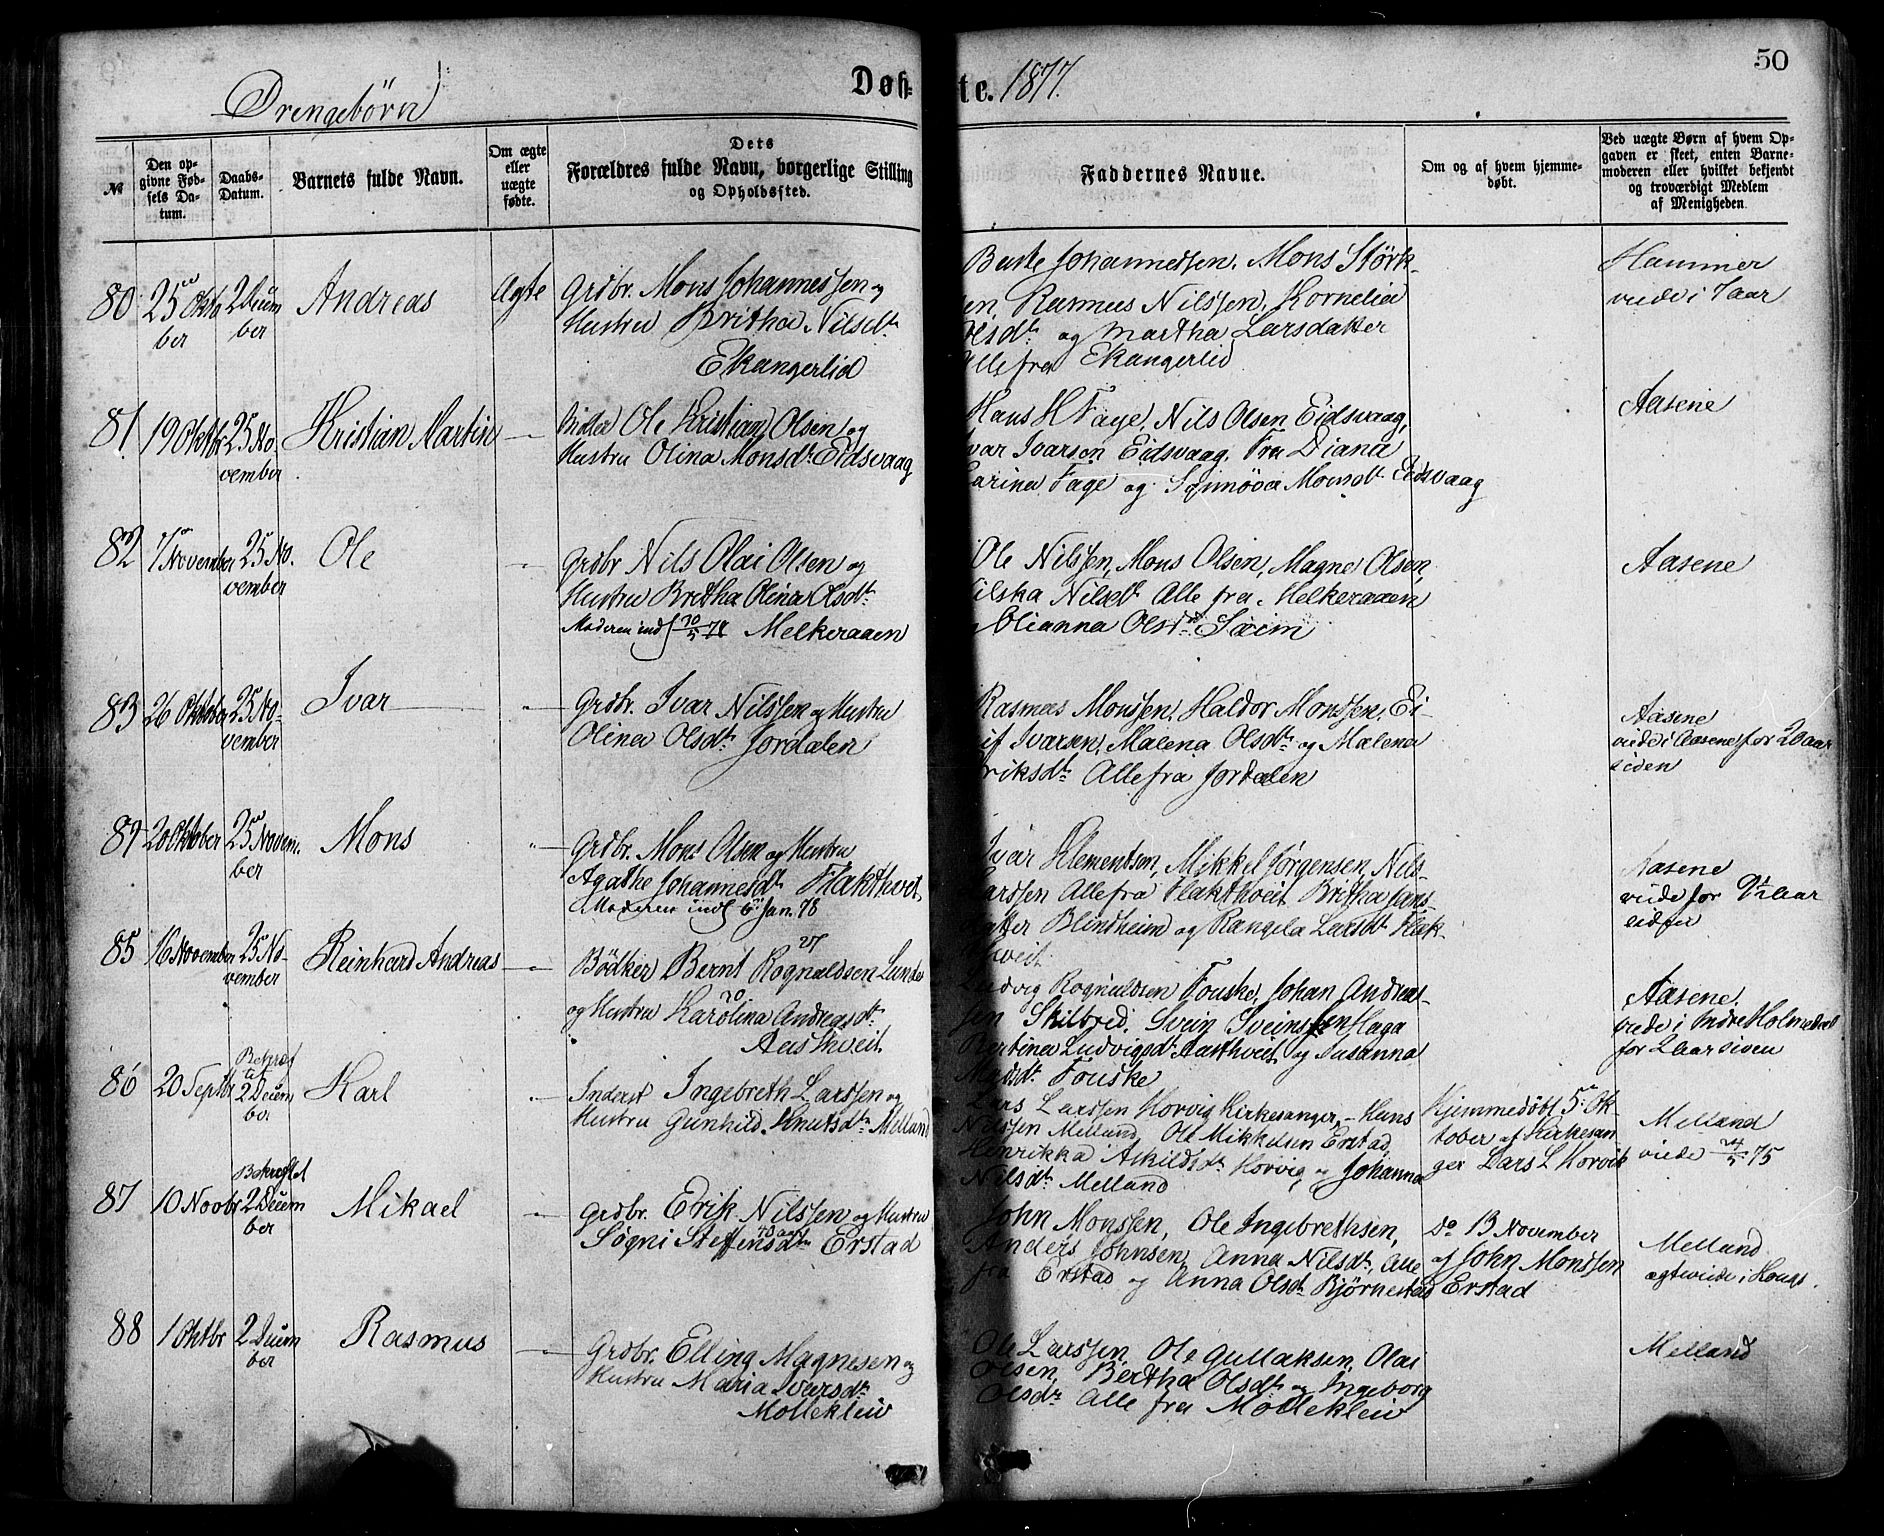 50
Døbte. 1877.
Drengebørn
№
Den opgivne Fødsels Datum.
Daabs-Datum.
Barnets fulde Navn.
Om ægte eller uægte fødte.
Dets Forældres fulde Navn, borgerlige Stilling og Opholdssted.
Faddernes Navne.
Om og af hvem hjemmedøbt.
Ved uægte Børn af hvem Opgaven er skeet, enten Barnemoderen eller hvilket bekjendt og troværdigt Medlem af Menigheden.
80 25 Okto 2 Decem Andreas Ægte Grdbr. Mons Johannessen og
ber ber Hustru Britha Nilsdt.
Ekangerlid
Johannessen, Mons Størk-
sen, Rasmus Nilssen, Kornelia
Olsdt. og Martha Larsdatter
Alle fra Ekangerlid
Hammer
viede i 7 aar
81 19 Oktbr 25 No Kristian Martin — Ole Kristian Olsen og
vember Hustru Olina Monsdt. Eidsvaag
Hans H Faye, Nils Olsen Eidsvaag,
Ivar Ivarsen Eidsvaag, Fru Diana
Carina Faye og Synnøva Monsdt. Eidsvaag
Aasene
82 7 November 25 No. Ole — Grdbr Nils Olai Olsen og
vember Hustru Britha Olina Olsdt.
Moderen indl 10/5 78 Melkeraaen
Ole Nilssen, Mons Olsen, Magne Olsen,
Nilsdt. Alle fra Melkeraaen
Olianna Olsdt. Sæim
Aasene
83 26 Oktober 25 No- Ivar — Grdbr. Ivar Nilssen og Hustru
vember Olina Olsdt. Jordalen
Rasmus Monssen, Haldor Monssen, Ei-
rif Ivarsen, Malena Olsdt. og Malena
Eriksdt. Alle fra Jordalen
Aasene
viede i Aasene for 20 aar
siden
84 20 Oktober 25 Novem- Mons — Grdbr. Mons Olsen og Hustru
ber Agathe Johannesdt. Flakthveit
Moderen indl 6 Jan. 78
Ivar Klementsen, Mikkel Jørgensen, Nils
Larssen Alle fra Flaktheit Britha
datter Blindheim og Rangela Larsdt. Flak-
thveit
Aasene
viede for 9 1/2 aar
siden
85 16 November 25 No- Reinhard Andreas — Bødker Bernt Rognaldsen Lunde 27
vember og Hustru Karolina Andreasdt. 20
Aasthveit
Ludvig Rognaldsen Fouske, Johan Andreas-
sen Skilbred, Svein Sveinssen Haga
Bertina Ludvigsdt. Aasthveit og Susanna
Madsdt. Fouske
Aasene,
viede i Indre Holmedal
for 2 aar siden
86 20 Septbr Bekræftet 2 Decem Karl — Inderst Ingebreth Larssen og
ber Hustru Gunhild Knutsdt. Melland
Lars Larssen Horvig Kirkesanger, Hans
Nilssen Melland, Ole Mikkelsen Erstad,
Henrikka Askildsdt. Horvig og Johanna
Nilsdt. Melland
Hjemmedøbt 5 Ok-
tober af Kirkesan
ger Lars L Horvik
Melland
viede 24/5 75
87 10 Novbr Bekræftet 2 Decem Mikael — Grdbr. Erik Nilssen og Hustru
ber Søgni Steffensdt. 40 aar Erstad
John Monssen, Ole Ingebrethsen,
Anders Johnsen, Anna Nilsdt., Alle
fra Erstad og Anna Olsdt. Bjørnestad
Do 13 November
af John Monssen
Erstad
Melland
88 1 Oktbr 2 Decem Rasmus — Grdbr. Elling Magnesen og
ber Hustru Maria Ivarsdt.
Mollekleiv
Ole Larssen, Ole Gullaksen, Olai
Olsen, Bertha Olsdt. og Ingeborg
Olsdt. Alle fra Mollekleiv
Melland